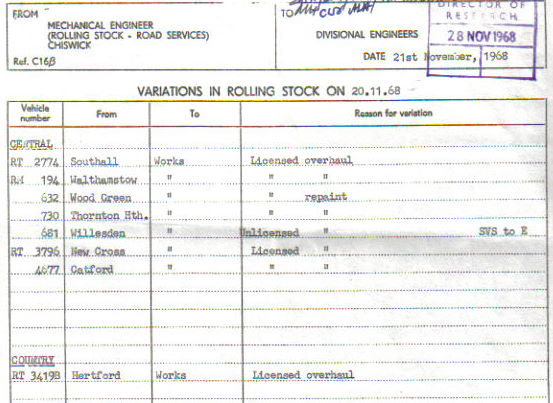 FROM
MECHANICAL ENGINEER
(ROLLING STOCK - ROAD SERVICES)
CHISWICK
Ref. C16β
TO
DIVISIONAL ENGINEERS
DATE 21st November, 1968
DIRECTOR OF
RESEARCH
28 NOV 1968
VARIATIONS IN ROLLING STOCK ON 20.11.68
Vehicle number From To Reason for variation
CENTRAL
RT 2774 Southall Works Licensed overhaul
RM 194 Walthamstow " " "
632 Wood Green " " repaint
730 Thornton Hth. " " "
681 Willesden " Unlicensed " SVS to E
RT 3796 New Cross " Licensed "
4677 Catford " " "
COUNTRY
RT 3419B Hertford Works Licensed overhaul